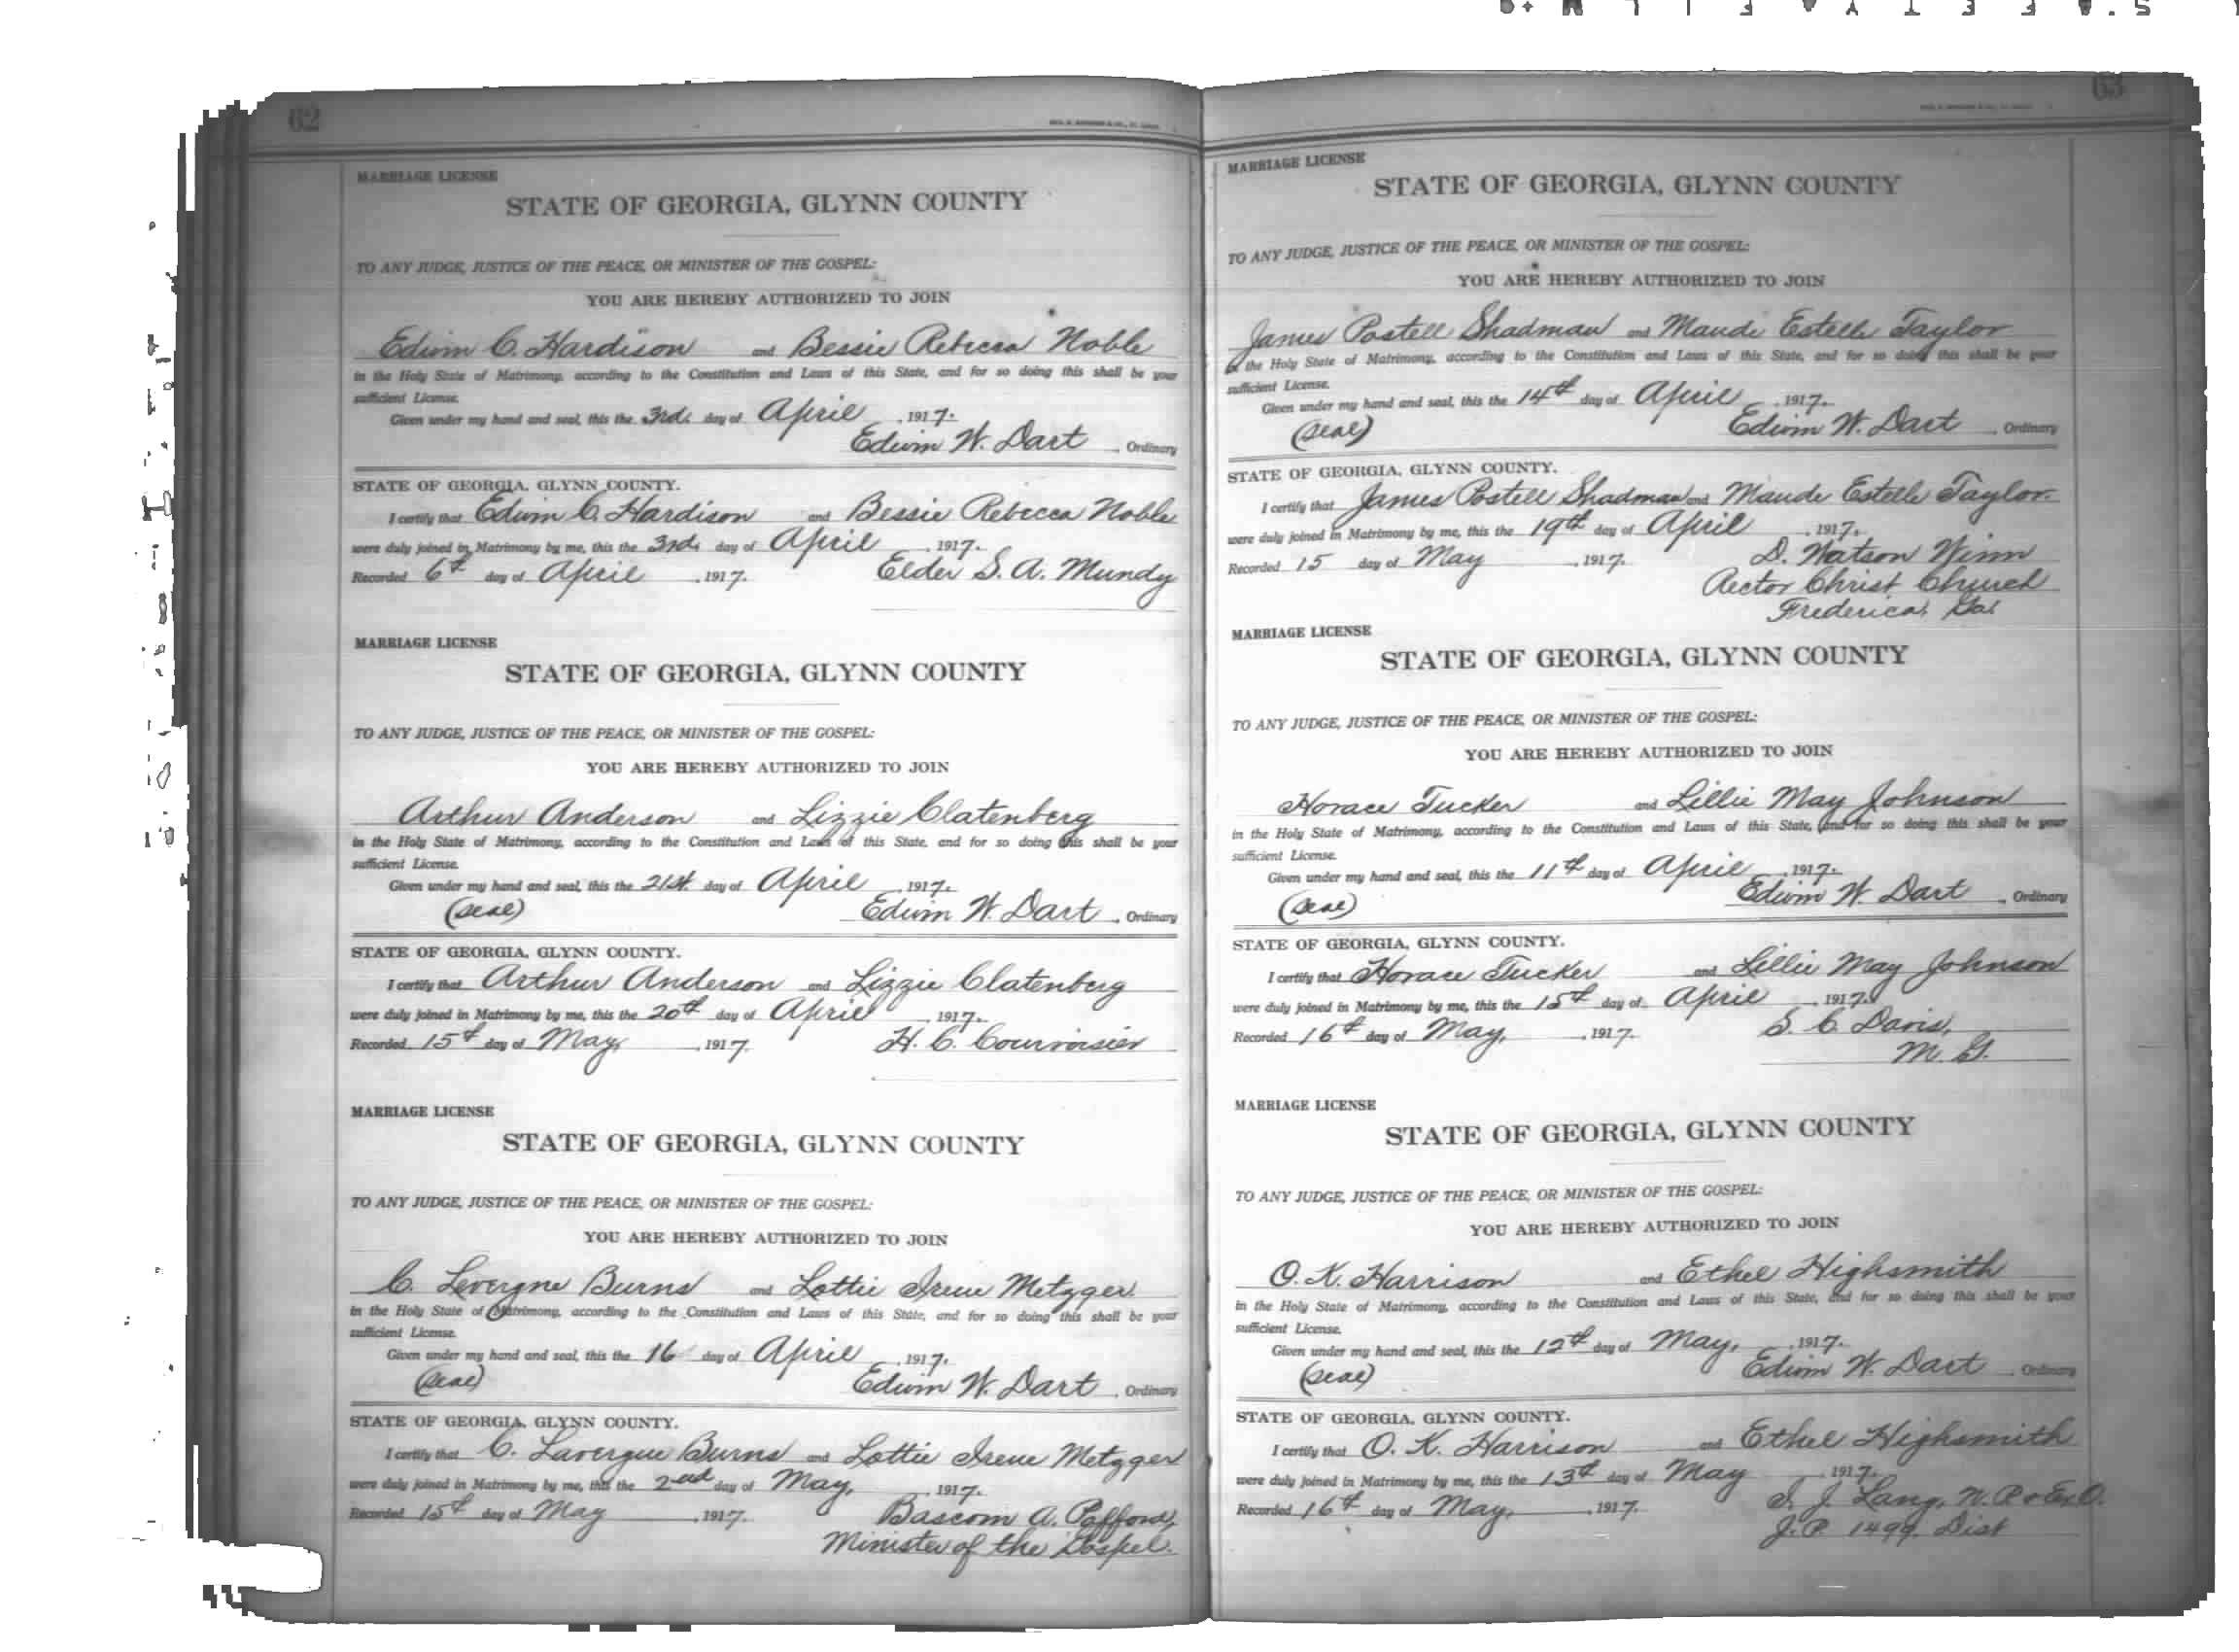 62
MARRIAGE LICENSE
STATE OF GEORGIA, GLYNN COUNTY
TO ANY JUDGE, JUSTICE OF THE PEACE, OR MINISTER OF THE GOSPEL:
YOU ARE HEREBY AUTHORIZED TO JOIN
Edwin C. Hardison and Bessie Rebecca Noble
in the Holy State of Matrimony, according to the Constitution and Laws of this State, and for so doing this shall be your
sufficient License.
Given under my hand and seal, this the 3rd. day of April, 1917.
Edwin W. Dart, Ordinary
STATE OF GEORGIA, GLYNN COUNTY.
I certify that Edwin C. Hardison and Bessie Rebecca Noble
were duly joined in Matrimony by me, this the 3rd. day of April, 1917.
Recorded 6th day of April, 1917. Elder S. A. Mundy
MARRIAGE LICENSE
STATE OF GEORGIA, GLYNN COUNTY
TO ANY JUDGE, JUSTICE OF THE PEACE, OR MINISTER OF THE GOSPEL:
YOU ARE HEREBY AUTHORIZED TO JOIN
Arthur Anderson and Lizzie Clatenberg
in the Holy State of Matrimony, according to the Constitution and Laws of this State, and for so doing this shall be your
sufficient License.
Given under my hand and seal, this the 21st. day of April, 1917.
(Seal) Edwin W. Dart, Ordinary
STATE OF GEORGIA, GLYNN COUNTY.
I certify that Arthur Anderson and Lizzie Clatenberg
were duly joined in Matrimony by me, this the 20th day of April, 1917.
Recorded 15th day of May, 1917. H. C. Courvoisier
MARRIAGE LICENSE
STATE OF GEORGIA, GLYNN COUNTY
TO ANY JUDGE, JUSTICE OF THE PEACE, OR MINISTER OF THE GOSPEL:
YOU ARE HEREBY AUTHORIZED TO JOIN
C. Levergne Burns and Lottie Irene Metzger.
in the Holy State of Matrimony, according to the Constitution and Laws of this State, and for so doing this shall be your
sufficient License.
Given under my hand and seal, this the 16 day of April, 1917.
(Seal) Edwin W. Dart, Ordinary
STATE OF GEORGIA, GLYNN COUNTY.
I certify that C. Lavergne Burns and Lottie Irene Metzger
were duly joined in Matrimony by me, this the 2nd day of May, 1917.
Recorded 15th day of May, 1917. Bascom A. Pafford,
Minister of the Gospel.
63
MARRIAGE LICENSE
STATE OF GEORGIA, GLYNN COUNTY
TO ANY JUDGE, JUSTICE OF THE PEACE, OR MINISTER OF THE GOSPEL:
YOU ARE HEREBY AUTHORIZED TO JOIN
James Postell Shadman and Maude Estelle Taylor
in the Holy State of Matrimony, according to the Constitution and Laws of this State, and for so doing this shall be your
sufficient License.
Given under my hand and seal, this the 14th day of April, 1917.
(Seal) Edwin W. Dart, Ordinary
STATE OF GEORGIA, GLYNN COUNTY.
I certify that James Postell Shadman and Maude Estelle Taylor.
were duly joined in Matrimony by me, this the 19th day of April, 1917.
Recorded 15 day of May, 1917. D. Watson Winn
Rector Christ Church
Frederica, Ga.
MARRIAGE LICENSE
STATE OF GEORGIA, GLYNN COUNTY
TO ANY JUDGE, JUSTICE OF THE PEACE, OR MINISTER OF THE GOSPEL:
YOU ARE HEREBY AUTHORIZED TO JOIN
Horace Tucker and Lillie May Johnson
in the Holy State of Matrimony, according to the Constitution and Laws of this State, and for so doing this shall be your
sufficient License.
Given under my hand and seal, this the 11th day of April, 1917.
(Seal) Edwin W. Dart, Ordinary
STATE OF GEORGIA, GLYNN COUNTY.
I certify that Horace Tucker and Lillie May Johnson
were duly joined in Matrimony by me, this the 15th day of April, 1917.
Recorded 16th day of May, 1917. S. C. Davis,
M. G.
MARRIAGE LICENSE
STATE OF GEORGIA, GLYNN COUNTY
TO ANY JUDGE, JUSTICE OF THE PEACE, OR MINISTER OF THE GOSPEL:
YOU ARE HEREBY AUTHORIZED TO JOIN
O. K. Harrison and Ethel Highsmith
in the Holy State of Matrimony, according to the Constitution and Laws of this State, and for so doing this shall be your
sufficient License.
Given under my hand and seal, this the 12th day of May, 1917.
(Seal) Edwin W. Dart, Ordinary
STATE OF GEORGIA, GLYNN COUNTY.
I certify that O. K. Harrison and Ethel Highsmith
were duly joined in Matrimony by me, this the 13th day of May 1917.
Recorded 16th day of May, 1917. J. Lang, N. P. & Ex. O.
J. P. 1499. Dist